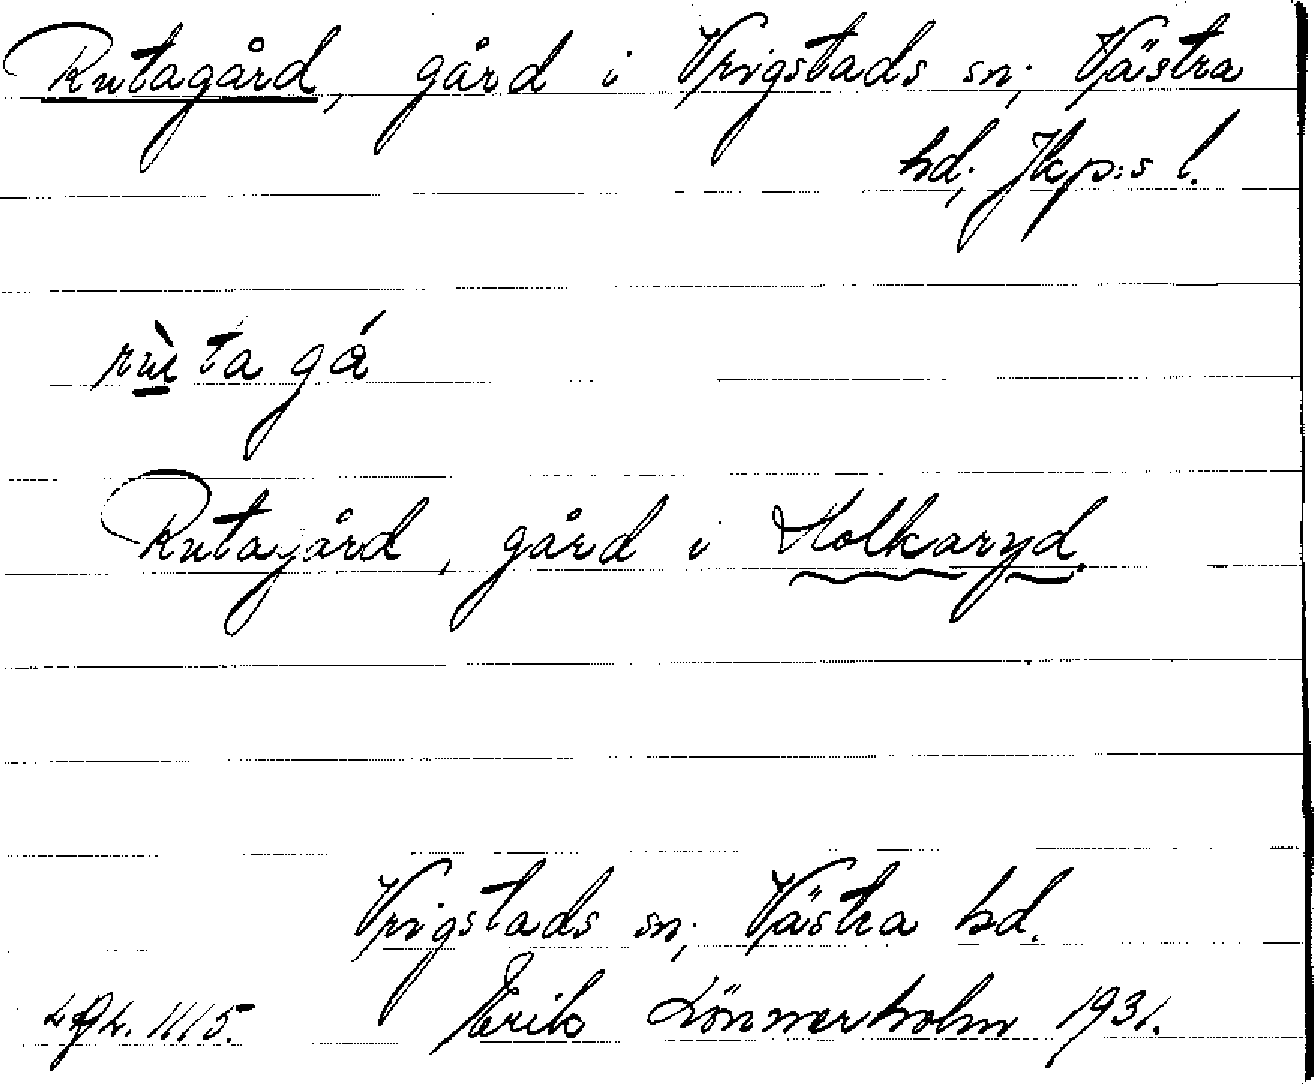 Rutagård, gård i Vrigstads sn; Västra
hd; Jkp:s l.
rùta gá
Rutagård, gård i Holkaryd.
Vrigstads sn; Västra hd.
1115. Erik Lönnerholm 1931.